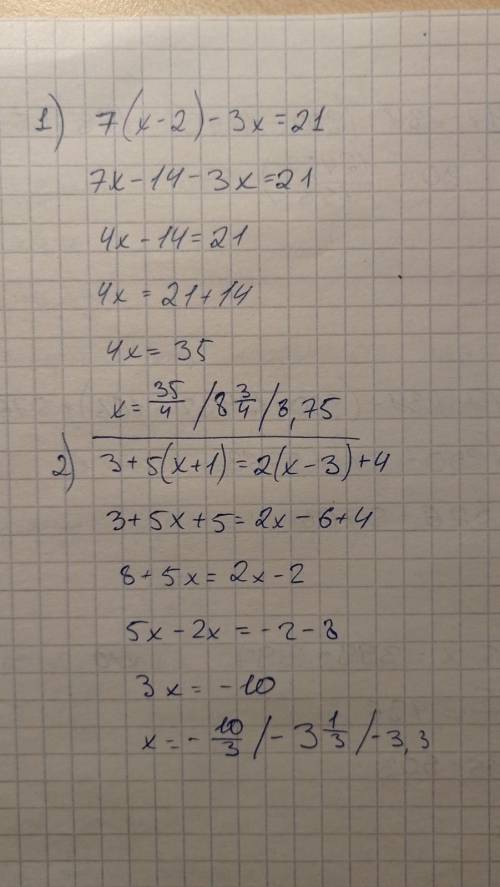 1) 7(x-2)-3x=21
7x-14-3x=21
4x-14=21
4x = 21+14
4x= 35
x= 35/4 / 8 3/4 / 8,75
2) 3+5(x+1)=2(x-3)+4
3+5x+5=2x-6+4
8+5x=2x-2
5x-2x=-2-8
3x=-10
x=- 10/3 / -3 1/3 / -3,3